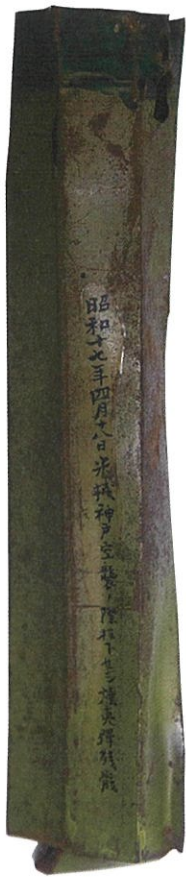 昭和十七年四月十八日米機神戸空襲ノ際投下セシ燒夷彈殘骸